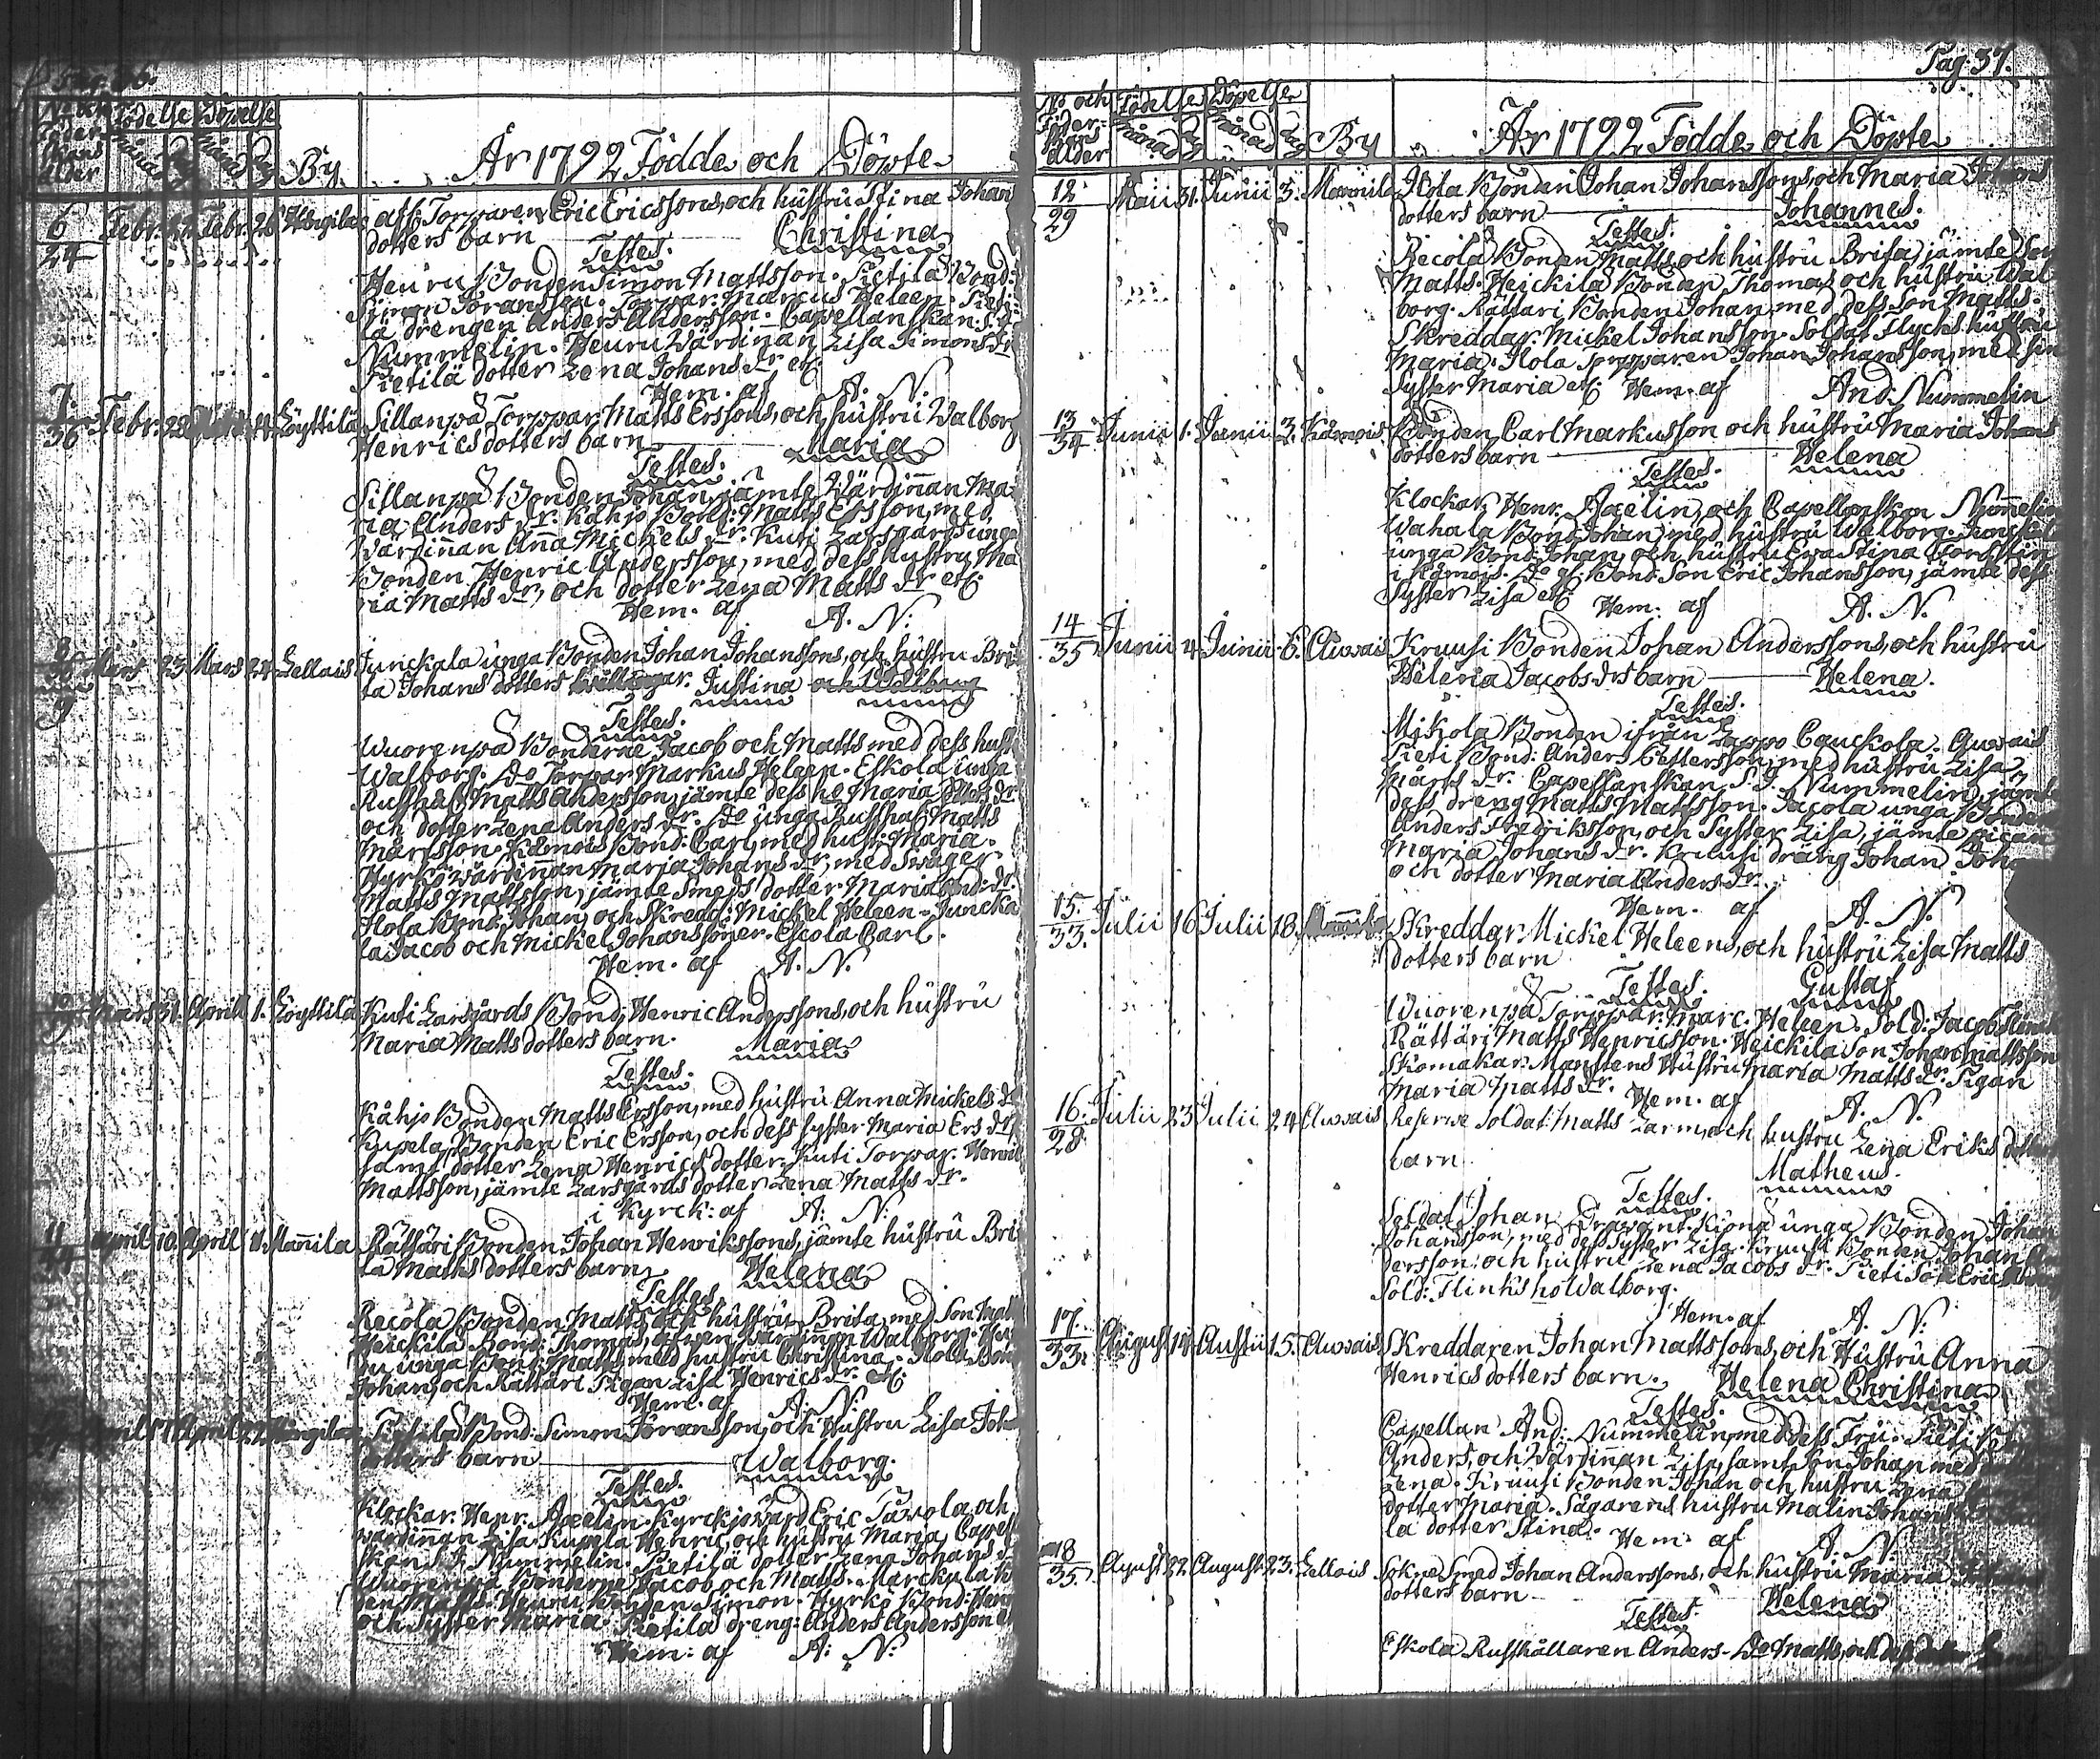 By
År 1792 Födde och Döpte
6 Febr. 22 Febr. 26 aff: Torpparen Eric Ericssons, och hustru Stina Johans
24 dotters barn Christina
Testes.
Heuru Bonden Simon Mattsson. Pietilä Bond:
Simon Göransson. Torpar: Marcus Heleen. Pieti-
lä drengen Anders Andersson. Capellanskan S. J.
Nummelin. Heuru Wärdinan Lisa Simons dr
Pietilä dotter Lena Johans dr etc.
Hem. af A. N.
7.
36 Febr. 28 Löyttilä Sillanpä Torppar: Matts Erssons, och hustru Walborg
Henricsdotters barn Maria
Testes.
Sillanpä Bonden Johan, jämte Wärdinnan Ma-
ria Anders dr. Kåhjo Bond: Matts Ersson, med
Wärdinnan Anna Mickels dr. Kuti Larsgårds unga
Bonden Henric Andersson, med dess hustru Ma
ria Matts dr, och dotter Lena Matts dr etc.
Hem. af A. N:
8
Mars 23 Mars 24 Lellais Junckala unga Bonden Johan Johanssons, och hustru Bri-
9 ta Johans dotters Justina och Walborg
Testes.
Wuorenpä Bönderne Jacob och Matts med dess hust
Walborg. Do Torpar Markus Heleen. Eskola unga
Rusthål: Matts Andersson, jämte dess ho Maria dr
och dotter Lena Anders dr. Do unga Rusthål: Matts
Mårtsson. Kämois Bond: Carl, med hust: Maria.
Hyrkö wärdinnan Maria Johans dr, med Swåger
Matts Mattsson, jämte Smeds dotter Maria And: dr.
Ilola Bond: Johan, och Skredd: Mickel Heleen. Juncka
la Jacob och Mickel Johanssöner. Escola Carl.
Hem. af A. N.
10 Mars 31. Aprill 1. Löyttilä Kuti Larsgårds Bond, Henric Anderssons, och hustru
Maria Matts dotters barn. Maria
Testes.
Kåhjo Bonden Matts Ersson, med hustru Anna Mickels dr
Kupela Bonden Eric Ersson, och dess syster Maria Ers dr,
samt dotter Lena Henrics dotter. Kuti Torpar: Henric
Mattsson, jämte Larsgårds dotter Lena Matts dr.
i Kyrck: af A: N:
11 April 10. April 11. Mannila Rättäri Bonden Johan Henrikssons, jämte hustru Bri-
ta Matts dotters barn Helena
Testes
Recola Bonden Matts, och hustru Brita, med Son Matts
Heickilä Bond: Thomas, äfwen Wärdinan Walborg. Heu
ru unga Bond: Matts, med hustru Christina. Ilola Bond
Johan, och Rättäri Pigan Lisa Henrics dr. etc.
Hem. af A. N:
April 17 April 22 Pietilä Bond: Simon Göransson, och Hustru Lisa Joha
dotters barn Walborg.
Testes.
Klockar. Henr. Axelin. Kyrckjowärd Eric Tåwola, och
wärdinnan Lisa. Kupela Henric, och hustru Maria. Capell
skan S. J. Nummelin. Pietilä dotter Lena Johans d
Wuorenpä Bönderne Jacob och Matts. Marckula
den Matts. Heuru Bonden Simon. Hyrkö Bond: Henr
och Syster Maria. Pietilä dreng: Anders Andersson et
Hem: af A: N:
Pag: 37.
No och Födelse Döpelse
Ålder månad dag månad dag By År 1792 Födde och Döpte
12 Maii 31. Junii 3. Mannila Ilola Bonden Johan Johanssons, och Maria Johans
29 dotters barn Johannes.
Testes.
Recola Bonden Matts, och hustru Brita, jämte Son
Matts. Heickilä Bonden Thomas, och hustru Wal
borg. Rättäri Bonden Johan, med dess Son Matts.
Skreddar: Mickel Johansson. Soldat Flychs hustru
Maria. Ilola Torpparen Johan Johansson, med sin
Syster Maria etc. Hem. af And. Nummelin
13 Junii 1. Junii 3. Kämois Bonden Carl Markusson och hustru Maria Johans
34 dotters barn Helena
Testes.
Klockar. Henr. Axelin, och Capellanskan Nummelin
Wahala Bond: Johan, med hustru Walborg. Junckala
unga Bond. Johan, och hustru Eva Stina Forsström
i Kämois. Do gl. Bond. Son Eric Johansson, jämte dess
Syster Lisa etc. Hem. af A. N.
14 Junii 4 Junii 6. Auvais Kruusi Bonden Johan Anderssons, och hustru
35 Helena Jacobs drs barn Helena.
Testes.
Mikola Bonden ifrån Lappo Cauckola. Auvais
Pieti Bond: Anders Pettersson, med hustru Lisa
Mårts dr. Capellanskan S. J. Nummelin, jämte
dess dreng Matts Mattsson. Jacola unga Bonden
Anders Fredriksson, och Syster Lisa, jämte pigan
Maria Johans dr. Kruusi dräng Johan Joha
och dotter Maria Anders dr.
Hem. af A. N.
15. Julii 16 Julii 18. Skreddar: Mickel Heleens, och hustru Lisa Matts
33. dotters barn
Testes. Gustaf
Wuorenpä Torppar: Marc. Heleen. Sold: Jacob
Rättäri Matts Henricsson. Heickilä Son Johan Mattsson
Skomakar: Manstens Hustru Maria Matts dr. Pigan
Maria Matts dr. Hem. af A. N.
16. Julii 23 Julii 24 Auvais Reserve Soldat: Matts Larm, och hustru Lena Eriks dotters
28 barn Matheus
Testes.
Soldat Johan Dravant. Kiona unga Bonden Johan
Johansson, med dess Syster Lisa. Kruusi Bonden Johan An
dersson, och hustru Lena Jacobs dr. Pieti Son Eric
Sold: Flinks ho Walborg.
Hem. af A. N:
17. August 14 Austii 15. Auvais Skreddaren Johan Mattssons, och Hustru Anna
33. Henrics dotters barn. Helena Christina
Testes.
Capellan And: Nummelin, med dess Fru. Pieti
Anders, och Wärdinnan Lisa, samt Son Johan med
Lena. Kruusi Bonden Johan och hustru Lena
dotter Maria. Sågarens hustru Malin Johans
la dotter Stina. Hem. af A. N.
18 August 22 August 23. Lellais Sokne Smed Johan Anderssons, och hustru Maria
35. dotters barn Helena
Testes.
Eskola Rusthållaren Anders. Do Matts, och dess dotter